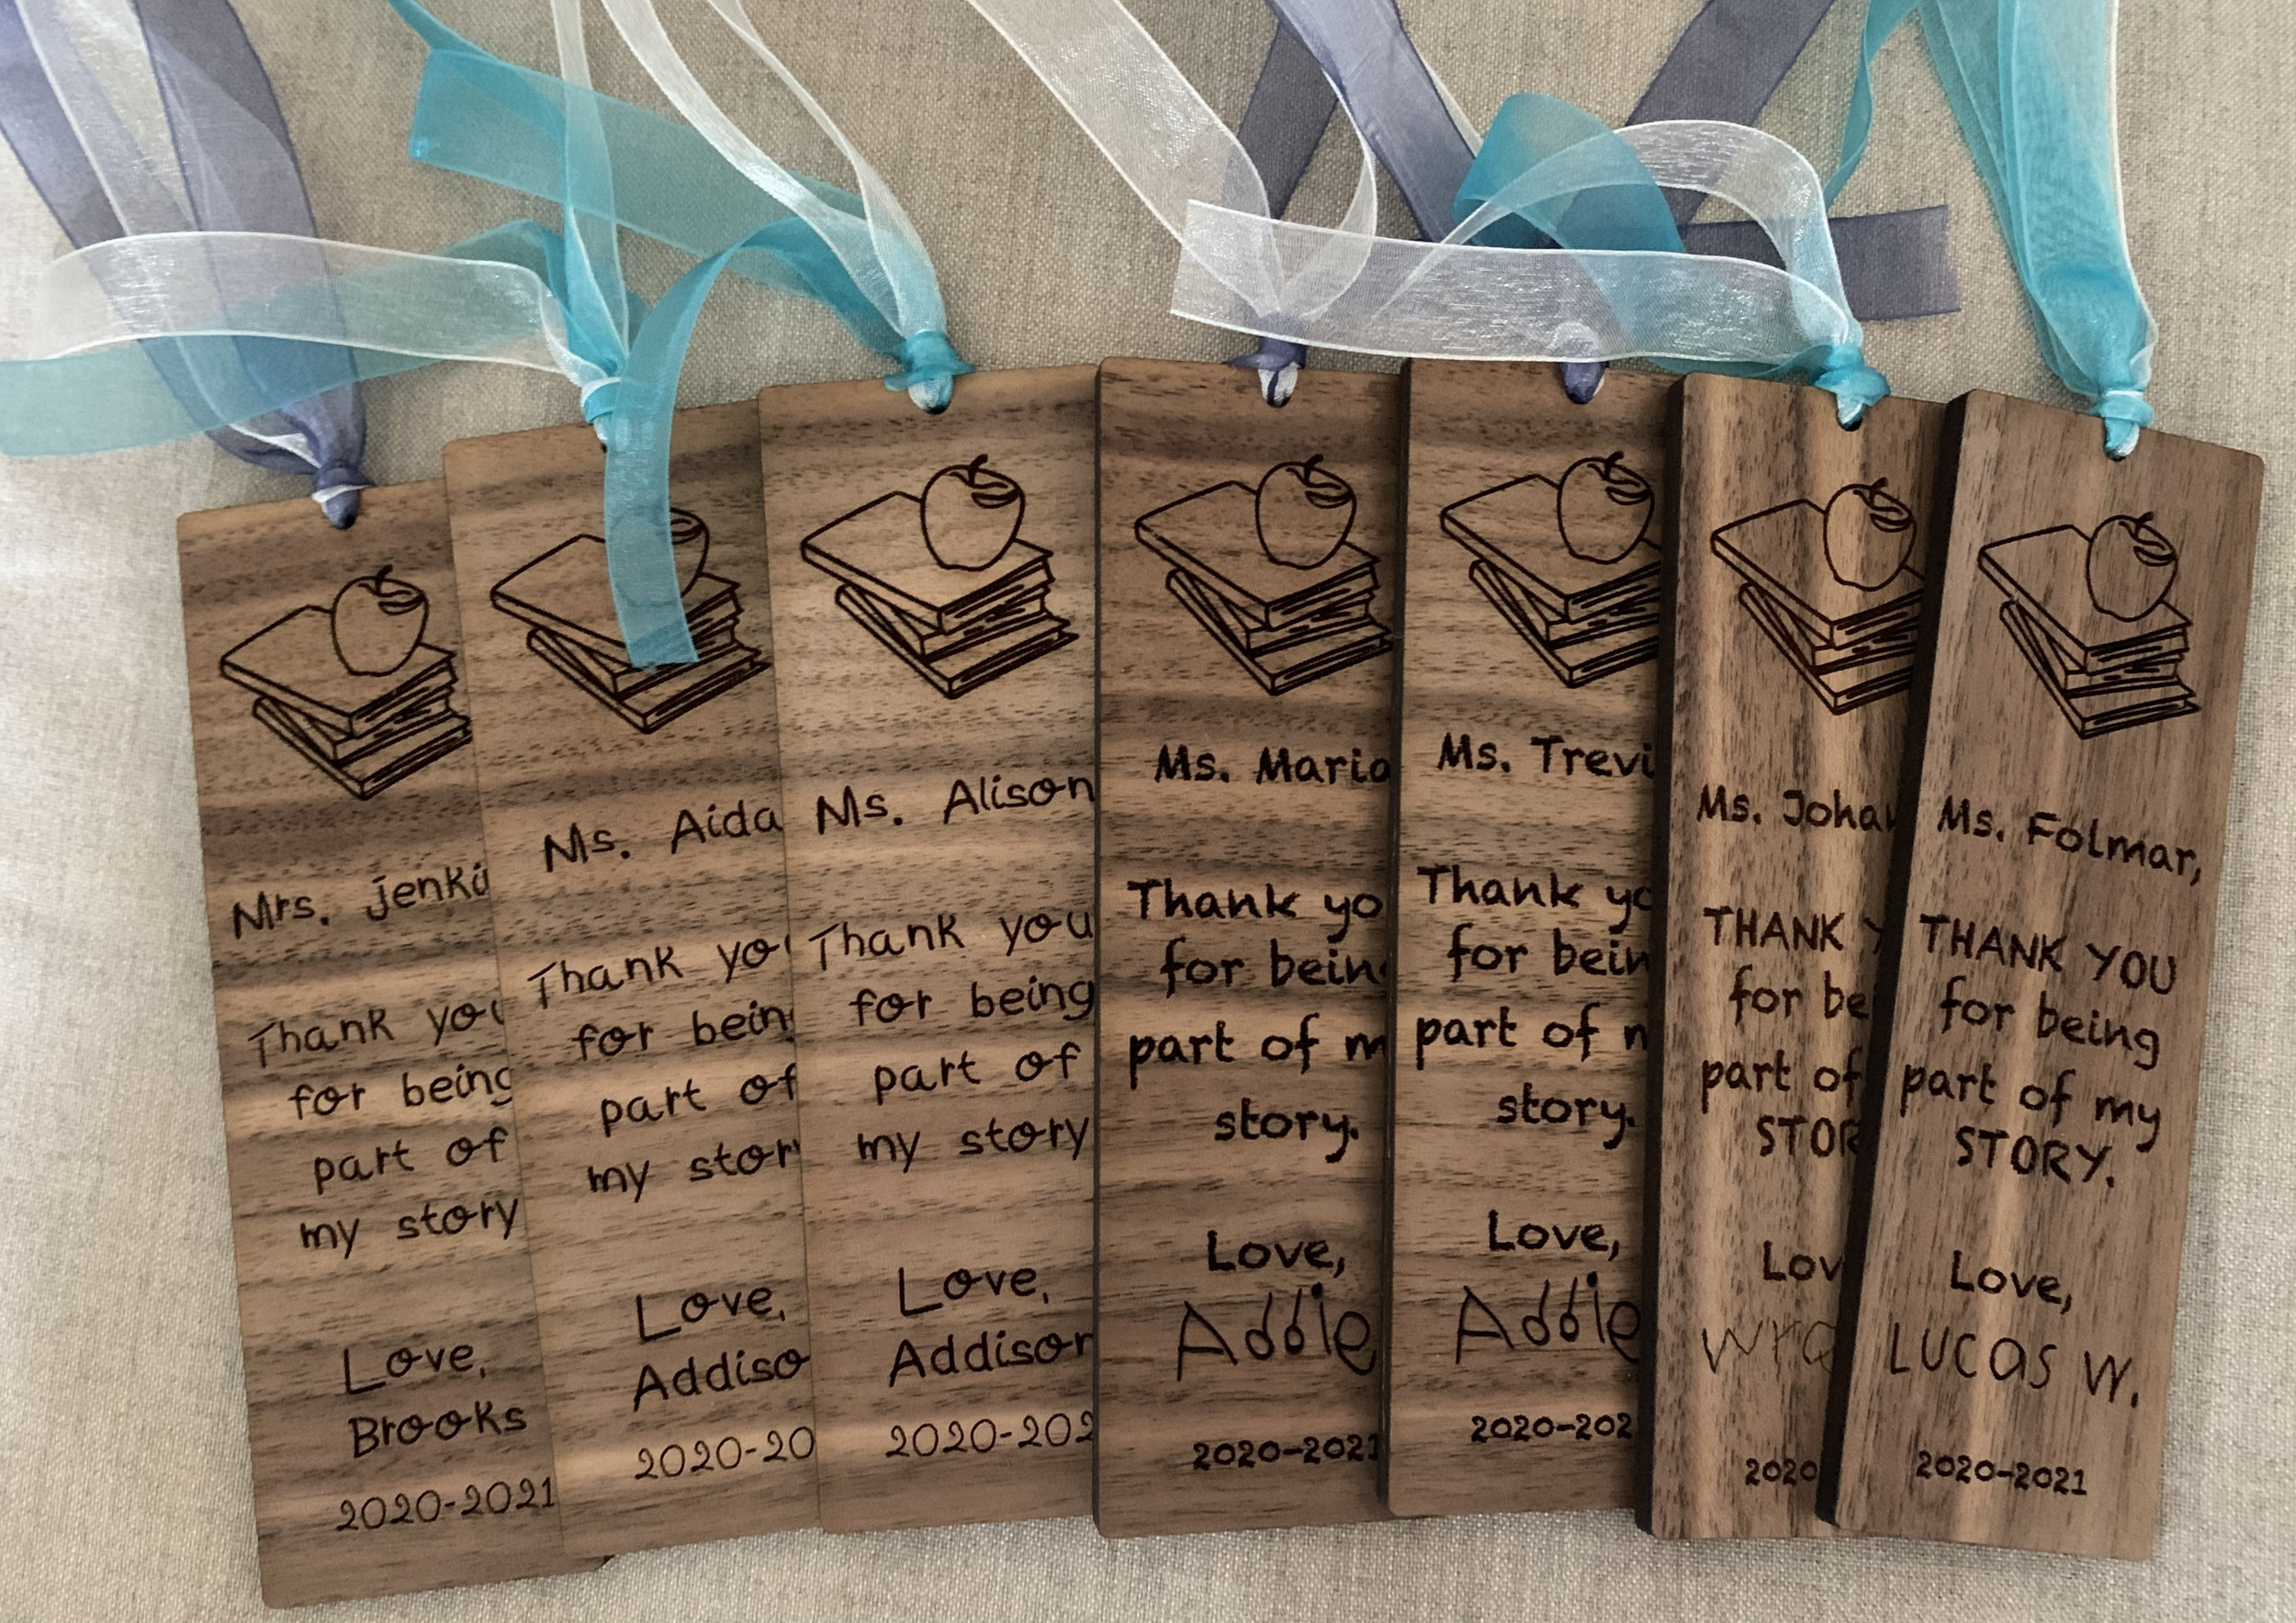 Mrs. jenki
Thank you
for being
part of
my story
Love,
Brooks
2020-2021
Ms. Aida
Thank you
for being
part of
my story
Love,
Addiso
2020-20
Ms. Alison
Thank you
for being
part of
my story
Love,
Addison
2020-202
Ms. Maria
Thank yo
for being
part of m
story.
Love,
Addie
2020-2021
Ms. Trevi
Thank yo
for bein
part of m
story.
Love,
Addie
2020-202
Ms. Johan
THANK Y
for be
part of
STOR
Lov
2020
Ms. Folmar,
THANK YOU
for being
part of my
STORY.
Love,
LUCAS W.
2020-2021